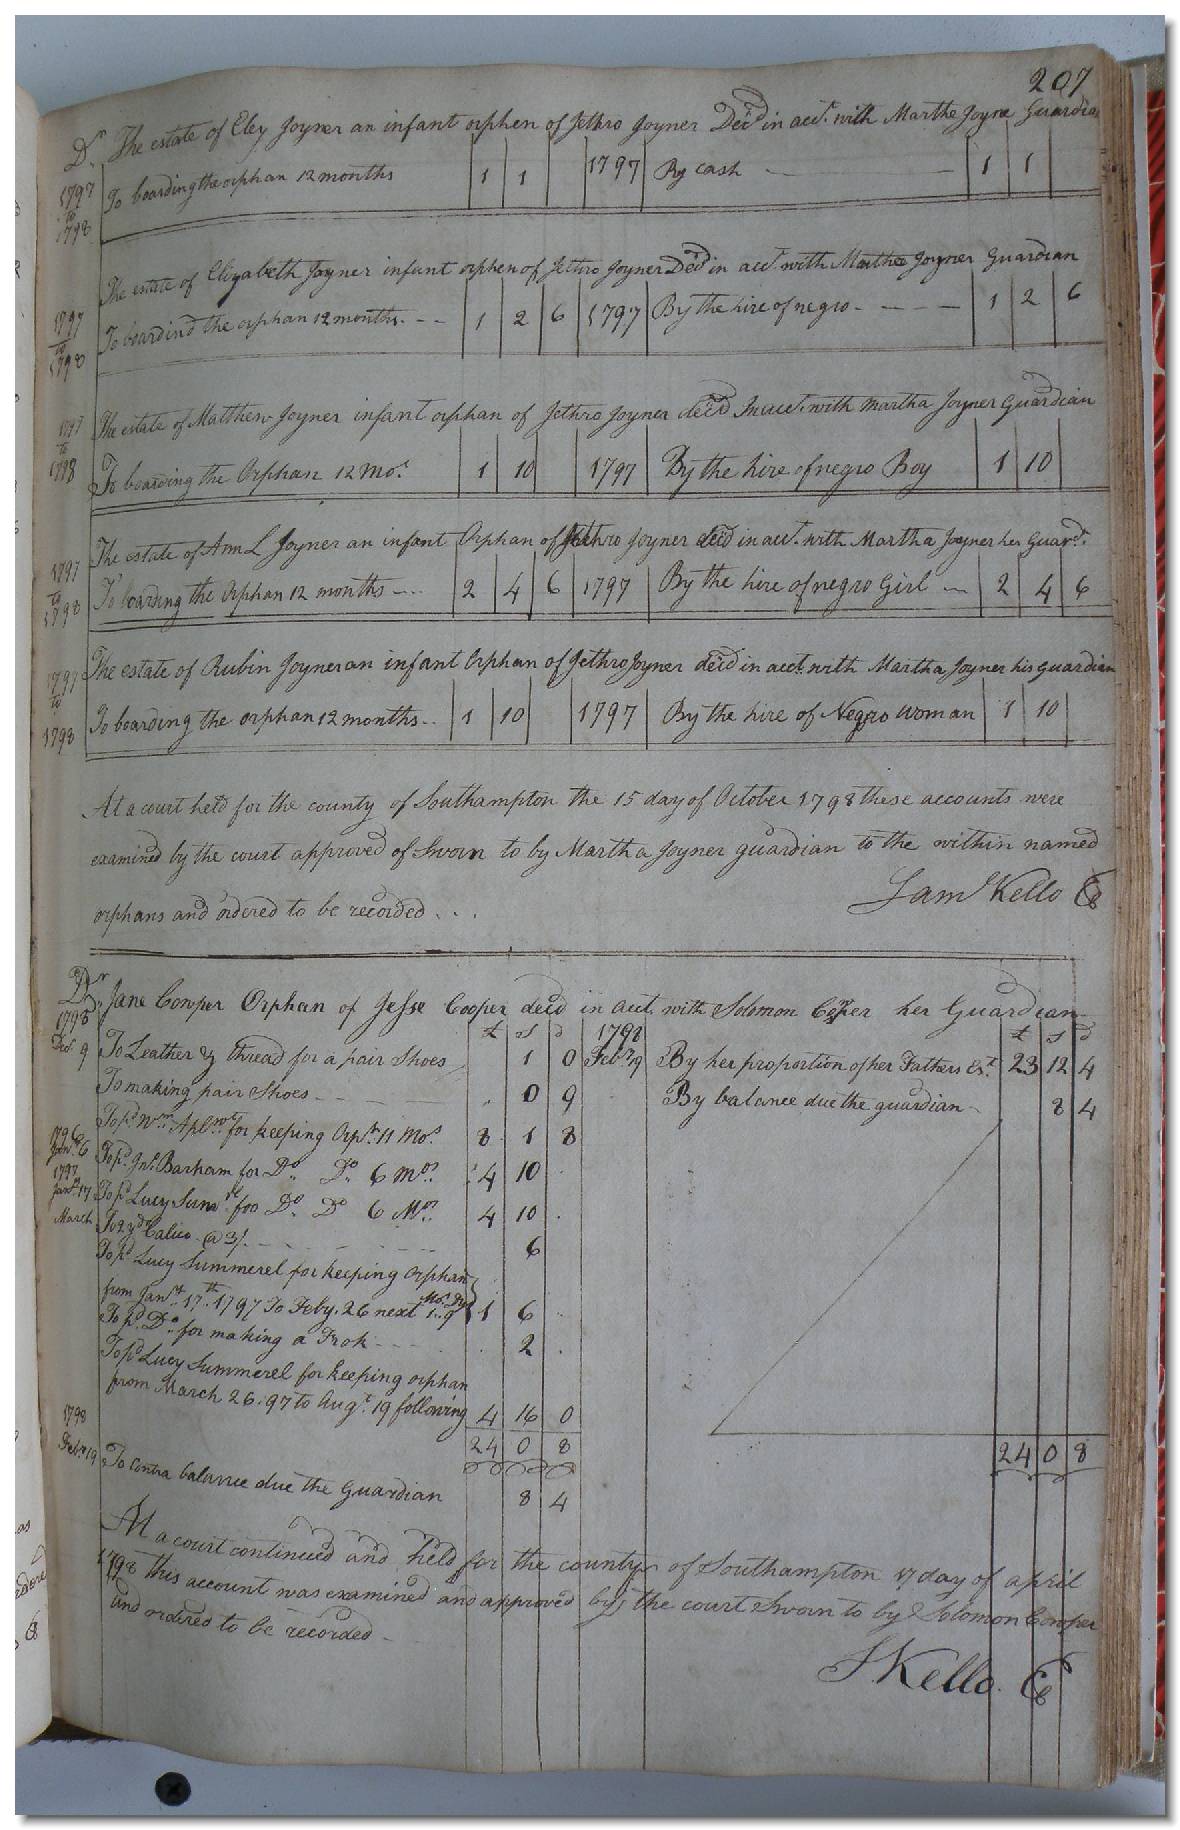 207
Dr. The estate of Eley Joyner an infant orphen of Jethro Joyner Decd in acct. with Marthe Joyne Guardian
1797 to 1798 To boarding the orphan 12 months 1 1 1797 By cash 1 1
The estate of Elizabeth Joyner infant orphen of Jethro Joyner Decd in acct. with Marthee Joyner Guardian
1797 to 1798 To boardind the orphan 12 months. - - 1 2 6 1797 By the hire of negro - - - - 1 2 6
The estate of Matthew Joyner infant orphan of Jethro Joyner decd In acct. with Martha Joyner Guardian
1797 to 1798 To boarding the Orphan 12 Mos. 1 10 1797 By the hire of negro Boy 1 10
The estate of Ann L Joyner an infant Orphan of Jethro Joyner decd in acct. with Martha Joyner her Guard.
1797 to 1798 To boarding the Orphan 12 months - ... 2 4 6 1797 By the hire of negro Girl - 2 4 6
The estate of Rubin Joyner an infant Orphan of Jethro Joyner decd in acct. with Martha Joyner his guardian
1797 to 1798 To boarding the orphan 12 months .. 1 10 1797 By the hire of Negro Woman 1 10
At a court held for the county of Southampton the 15 day of October 1798 these accounts were
examined by the court approved of Sworn to by Martha Joyner guardian to the within named
orphans and ordered to be recorded . . .
Saml Kello Ck
Dr. Jane Cowper Orphan of Jesse Cooper decd in acct. with Solomon Coper her Guardian
£ s d 1798 £ s d
To Leather & thread for a pair Shoes 1 0 Feby. 19 By her proportion of her Fathers Est. 23 12 4
To making pair Shoes - - - 0 9 By balance due the guardian - 8 4
To pd. Wm. for keeping Orpn. 11 Mos. 8 1 8
1796 Jany. 6 To pd. Jno. Barham for Do. Do. 6 Mos. 4 10
1797 Jany. 17 To pd. Lucy Sum for Do. Do. 6 Mos. 4 10
March To 2 yds Calico @ 3/. - - - 6
To pd. Lucy Summerel for keeping orphan
from Jany. 17th. 1797 To Feby. 26 next Mo. Dys 1.. 9 1 6
To pd. Do. for making a Frok - - - 2
To pd. Lucy Summerel for keeping orphan
from March 26. 97 to Augt. 19 following 4 16 0
24 0 8 24 0 8
1798 Feby. 19 To Contra balance due the Guardian 8 4
At a court continued and held for the county of Southampton 17 day of april
1798 this account was examined and approved by the court Sworn to by Solomon Cowper
and ordered to be recorded -
S. Kello. Ck